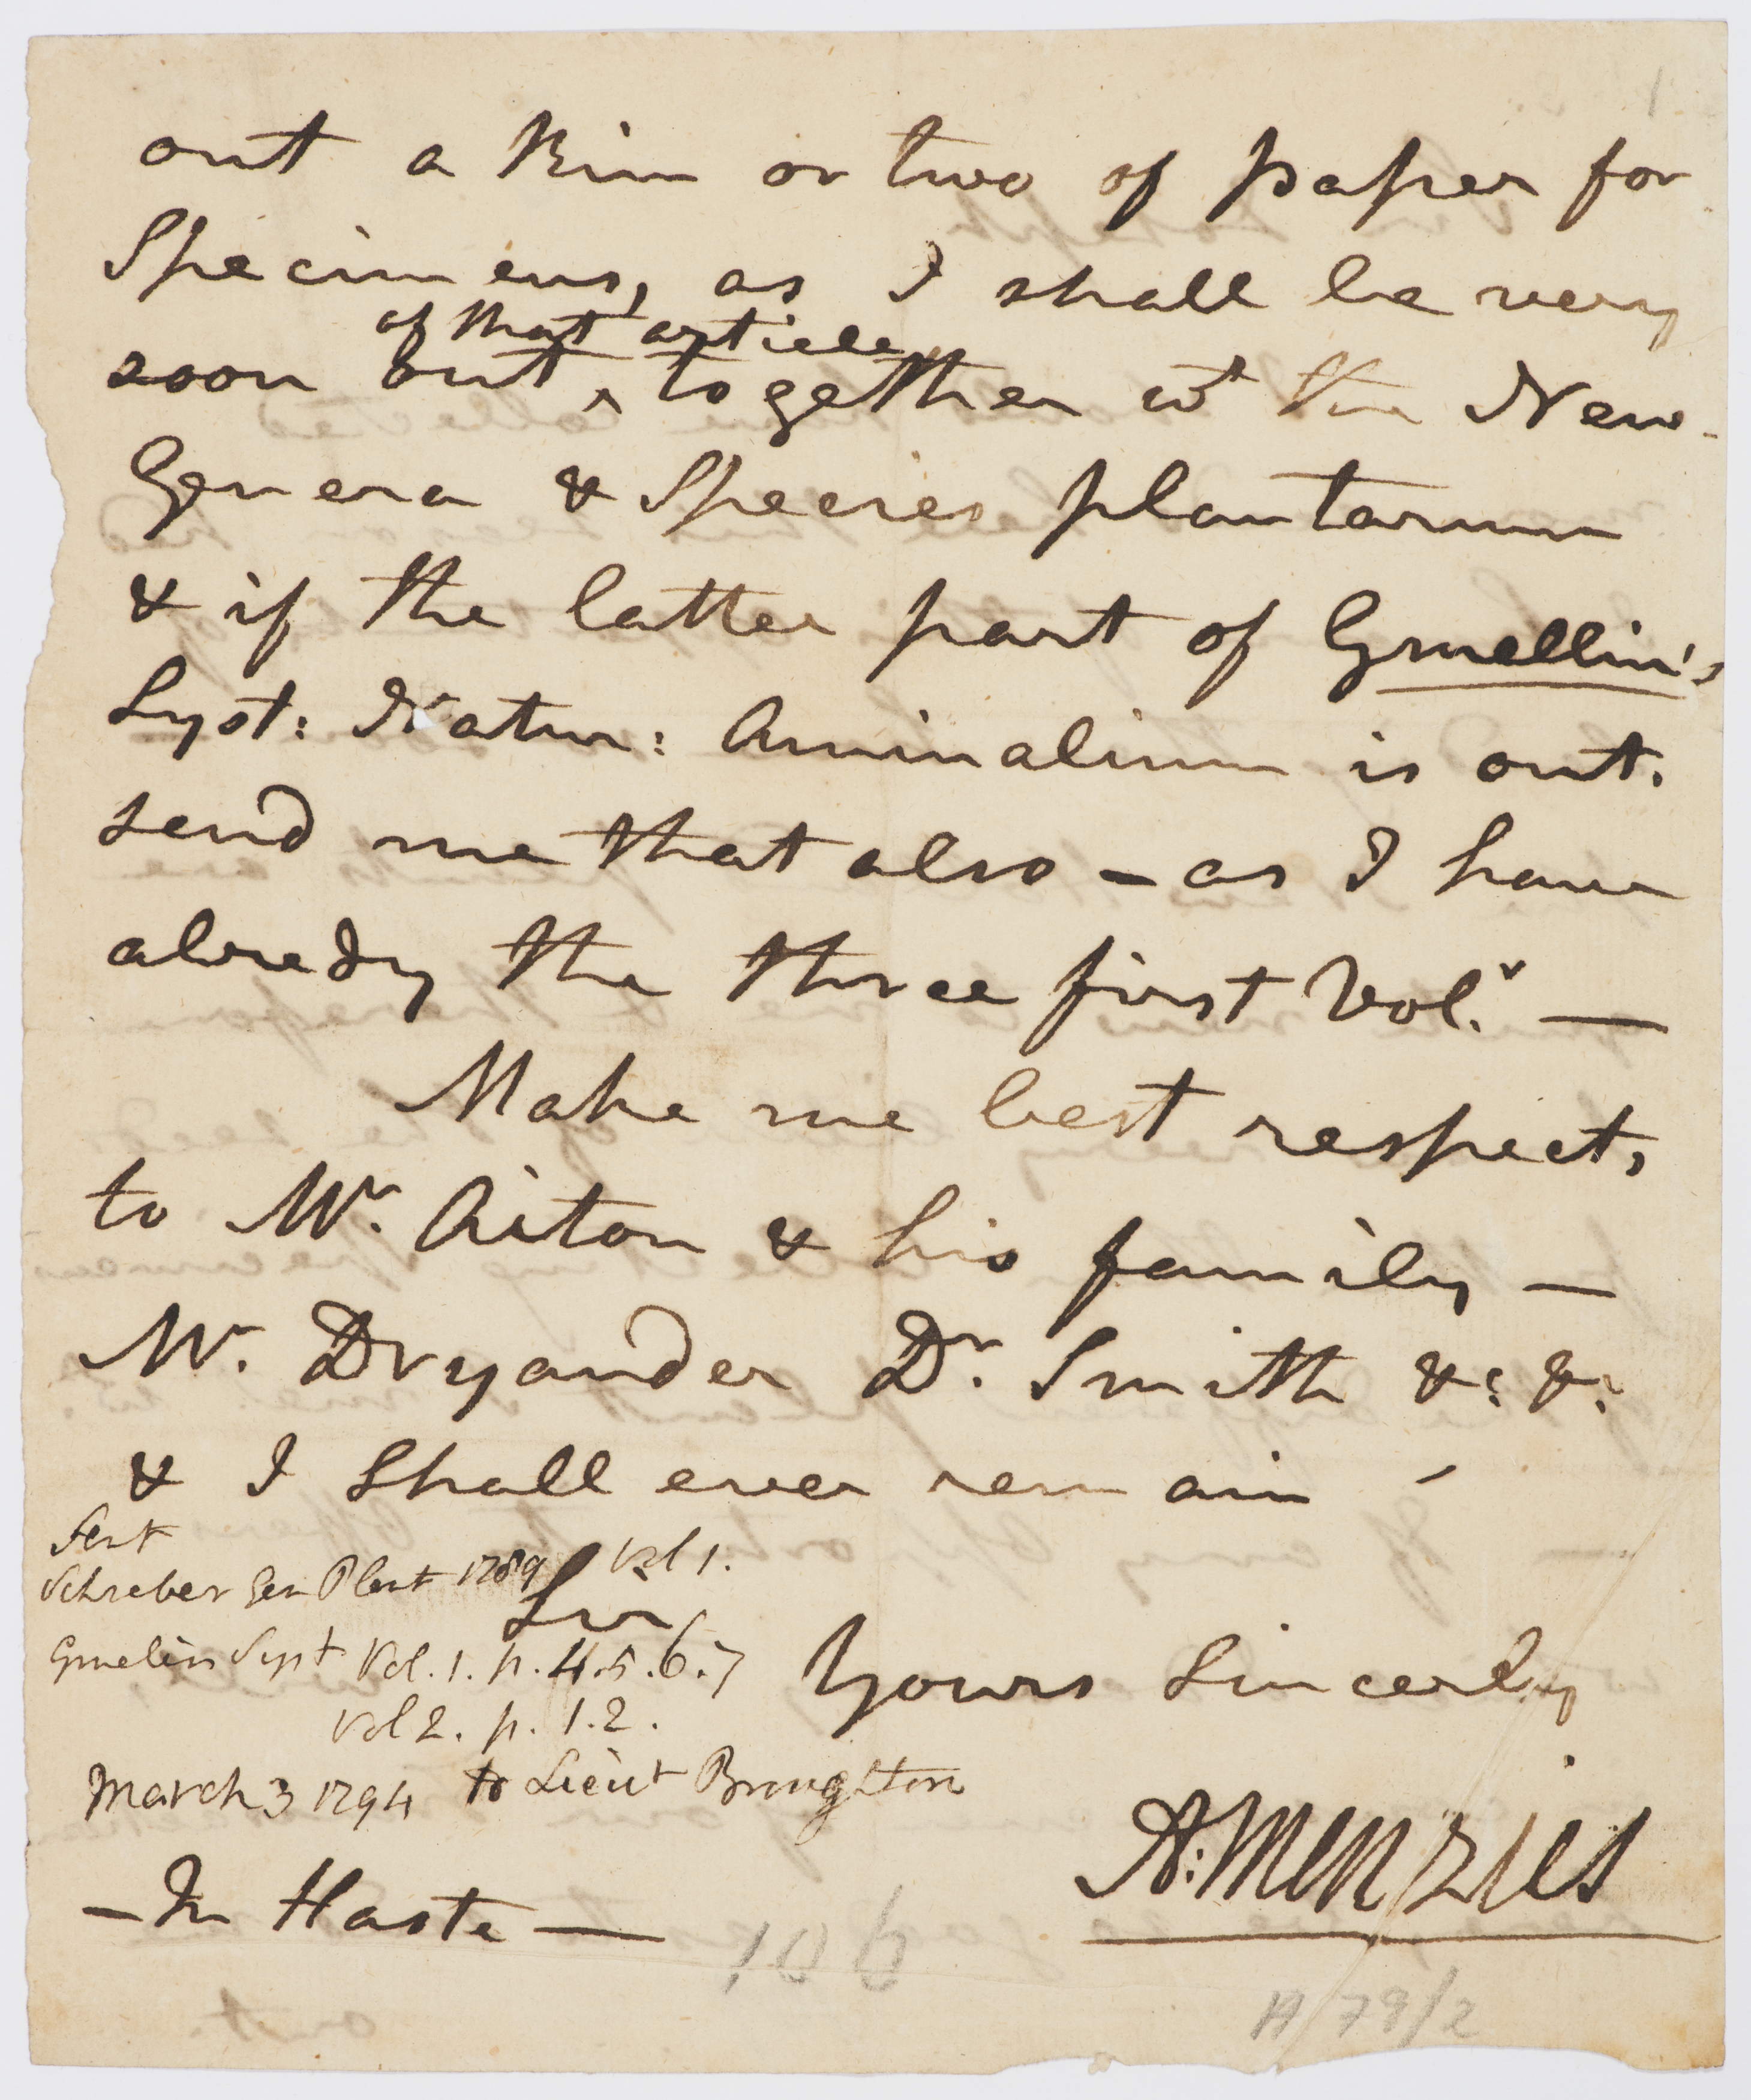 out a Rim or two of paper for
Specimens, as I shall be very
of that article
soon out ‸ together wt the New
Genera & Species plantarum
& if the latter part of Gmellin's
Syst: Natur: Animalium is out.
send me that also – as I have
alredy the three first Vol.s —
Make me best respects
to Mr. Aiton & his family —
Mr. Dryander Dr. Smith &c: &c:
& I shall ever remain –
Sent
Schreber Gen Plant 1789 Vol 1.
Sir
Gmelin Syst Vol. 1. p. 4.5.6.7
Yours Sincerly
Vol 2. p. 1.2.
March 3 1794 to Lieut Broughton
A: Menzies
– In Haste —
106
A 79/2